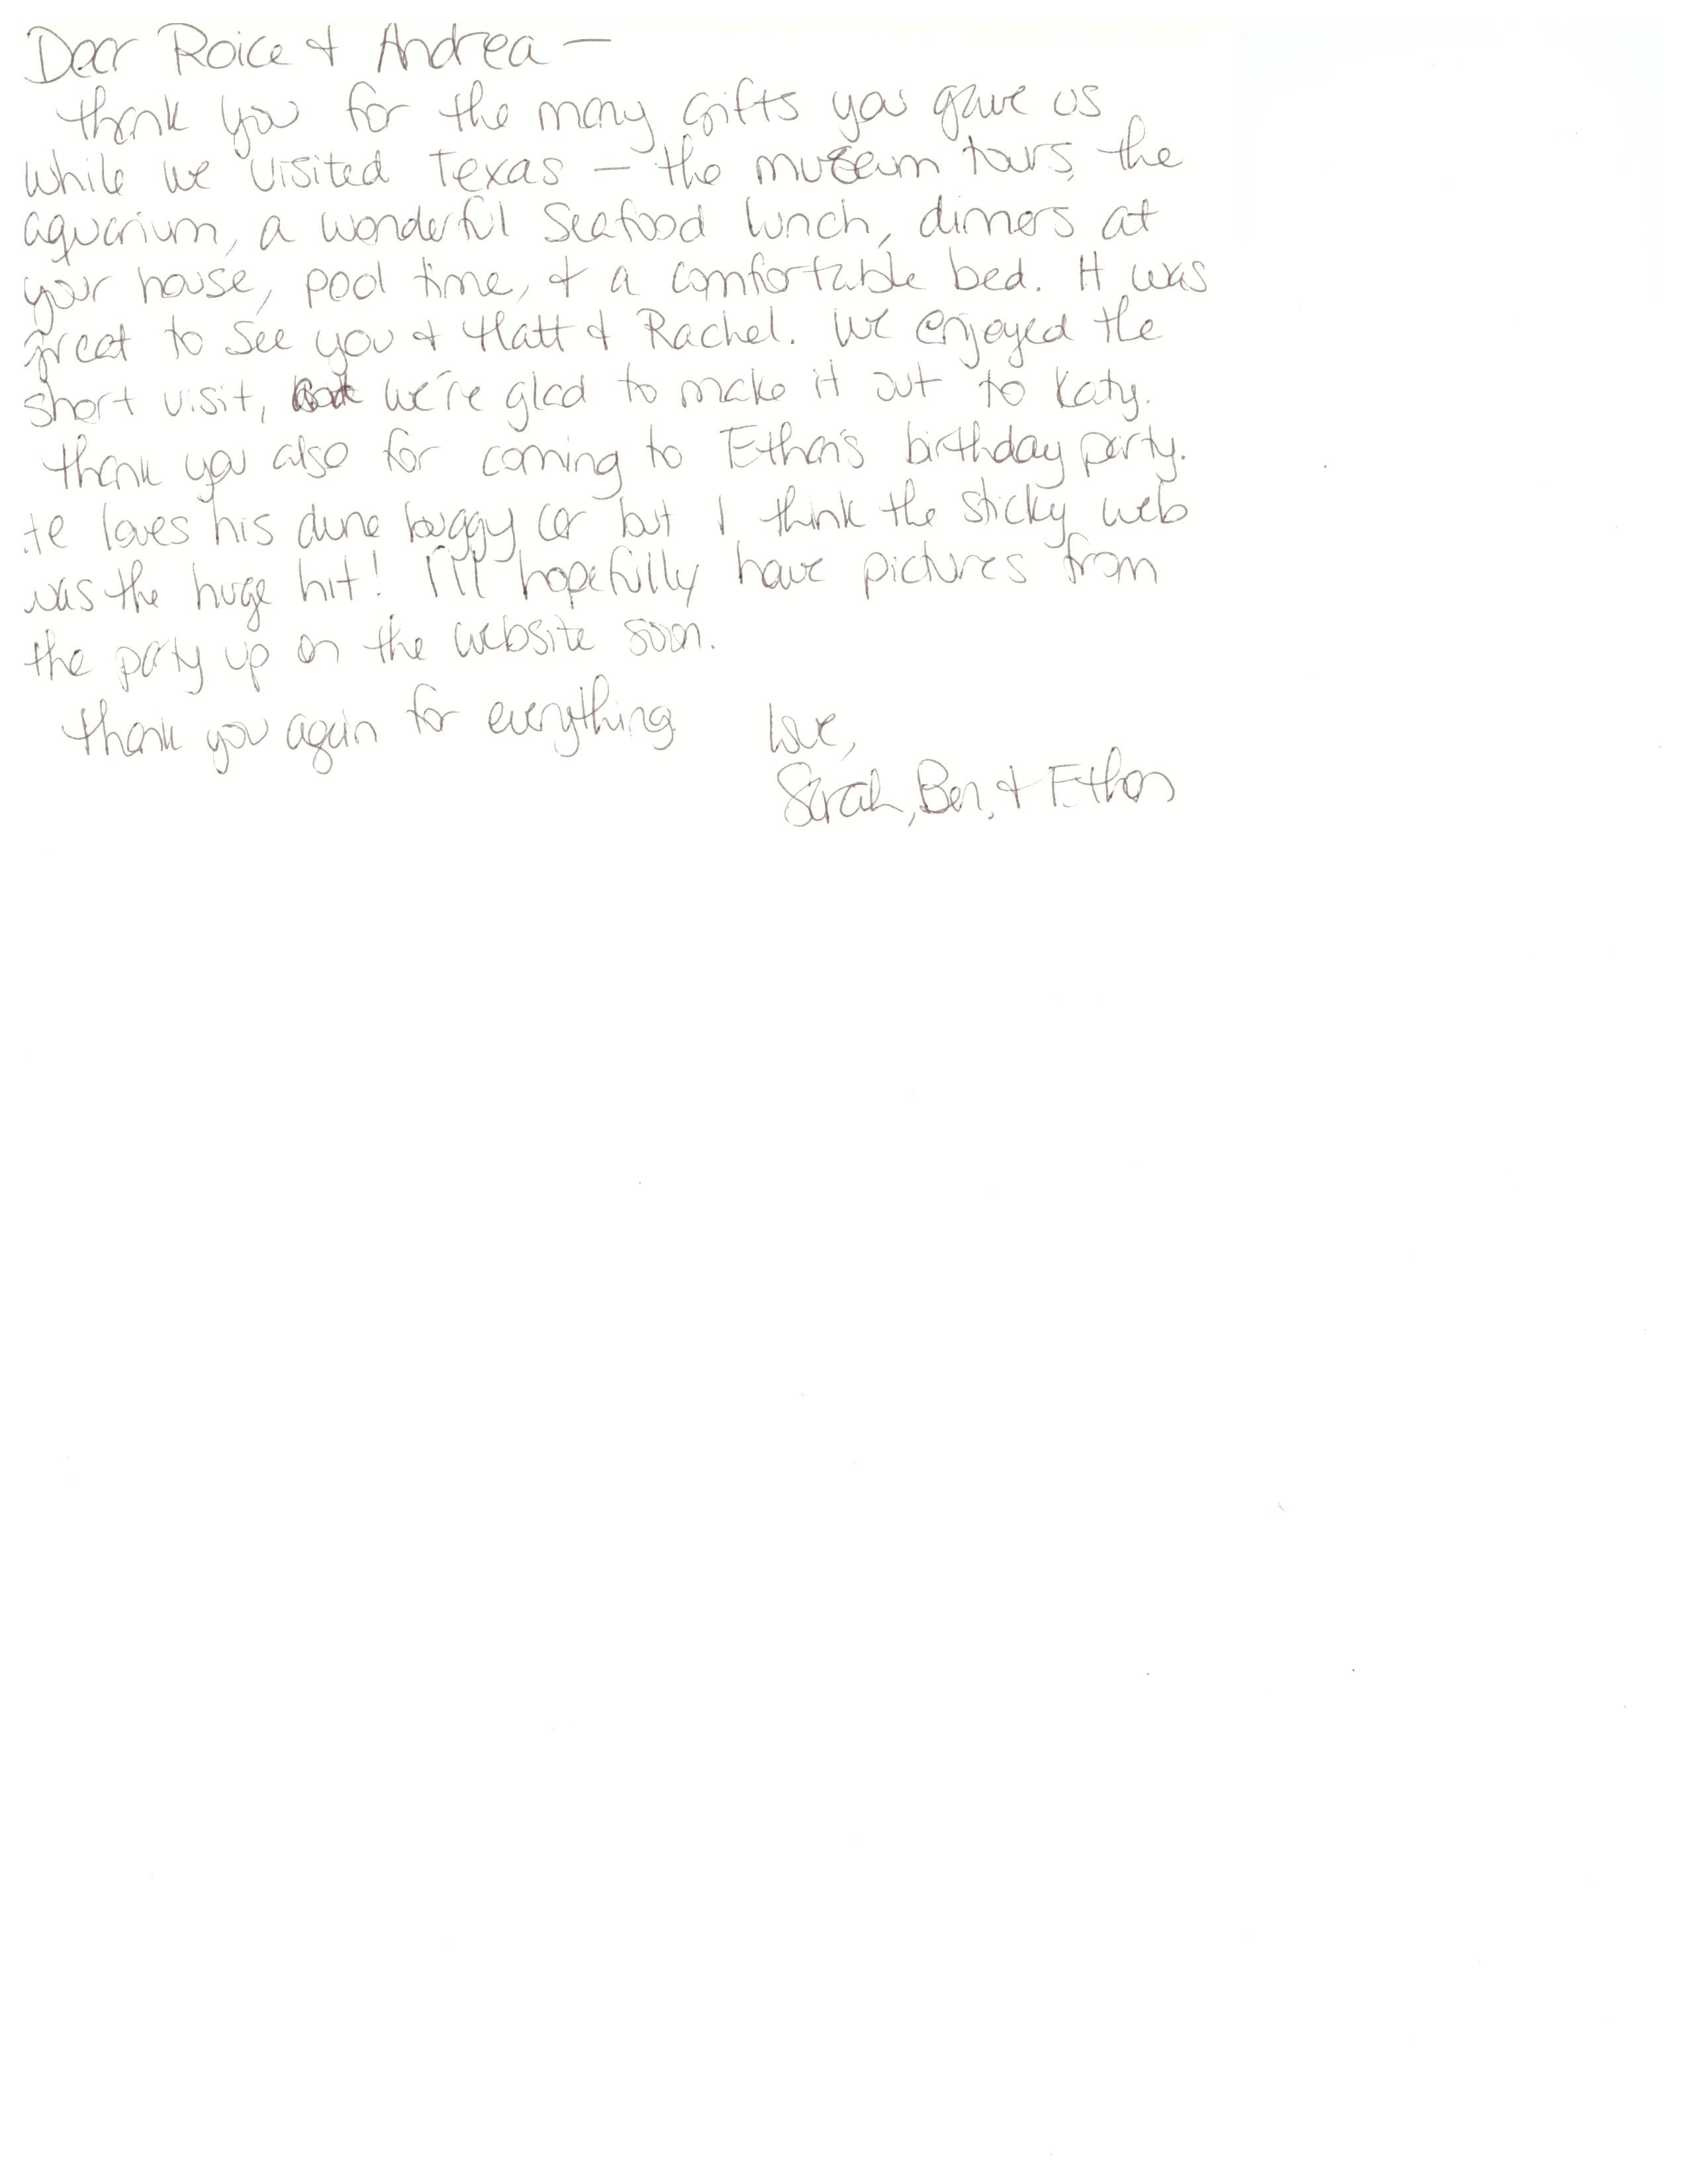 Dear Roice & Andrea —
Thank you for the many gifts you gave us
while we visited Texas — the museum tours, the
aquarium, a wonderful seafood lunch, dinners at
your house, pool time, & a comfortable bed. It was
great to see you & Matt & Rachel. We enjoyed the
short visit, but we're glad to make it out to Katy.
Thank you also for coming to Ethan's birthday party.
He loves his dune buggy car but I think the sticky web
was the huge hit! I'll hopefully have pictures from
the party up on the website soon.
Thank you again for everything
Love,
Sarah, Ben, & Ethan